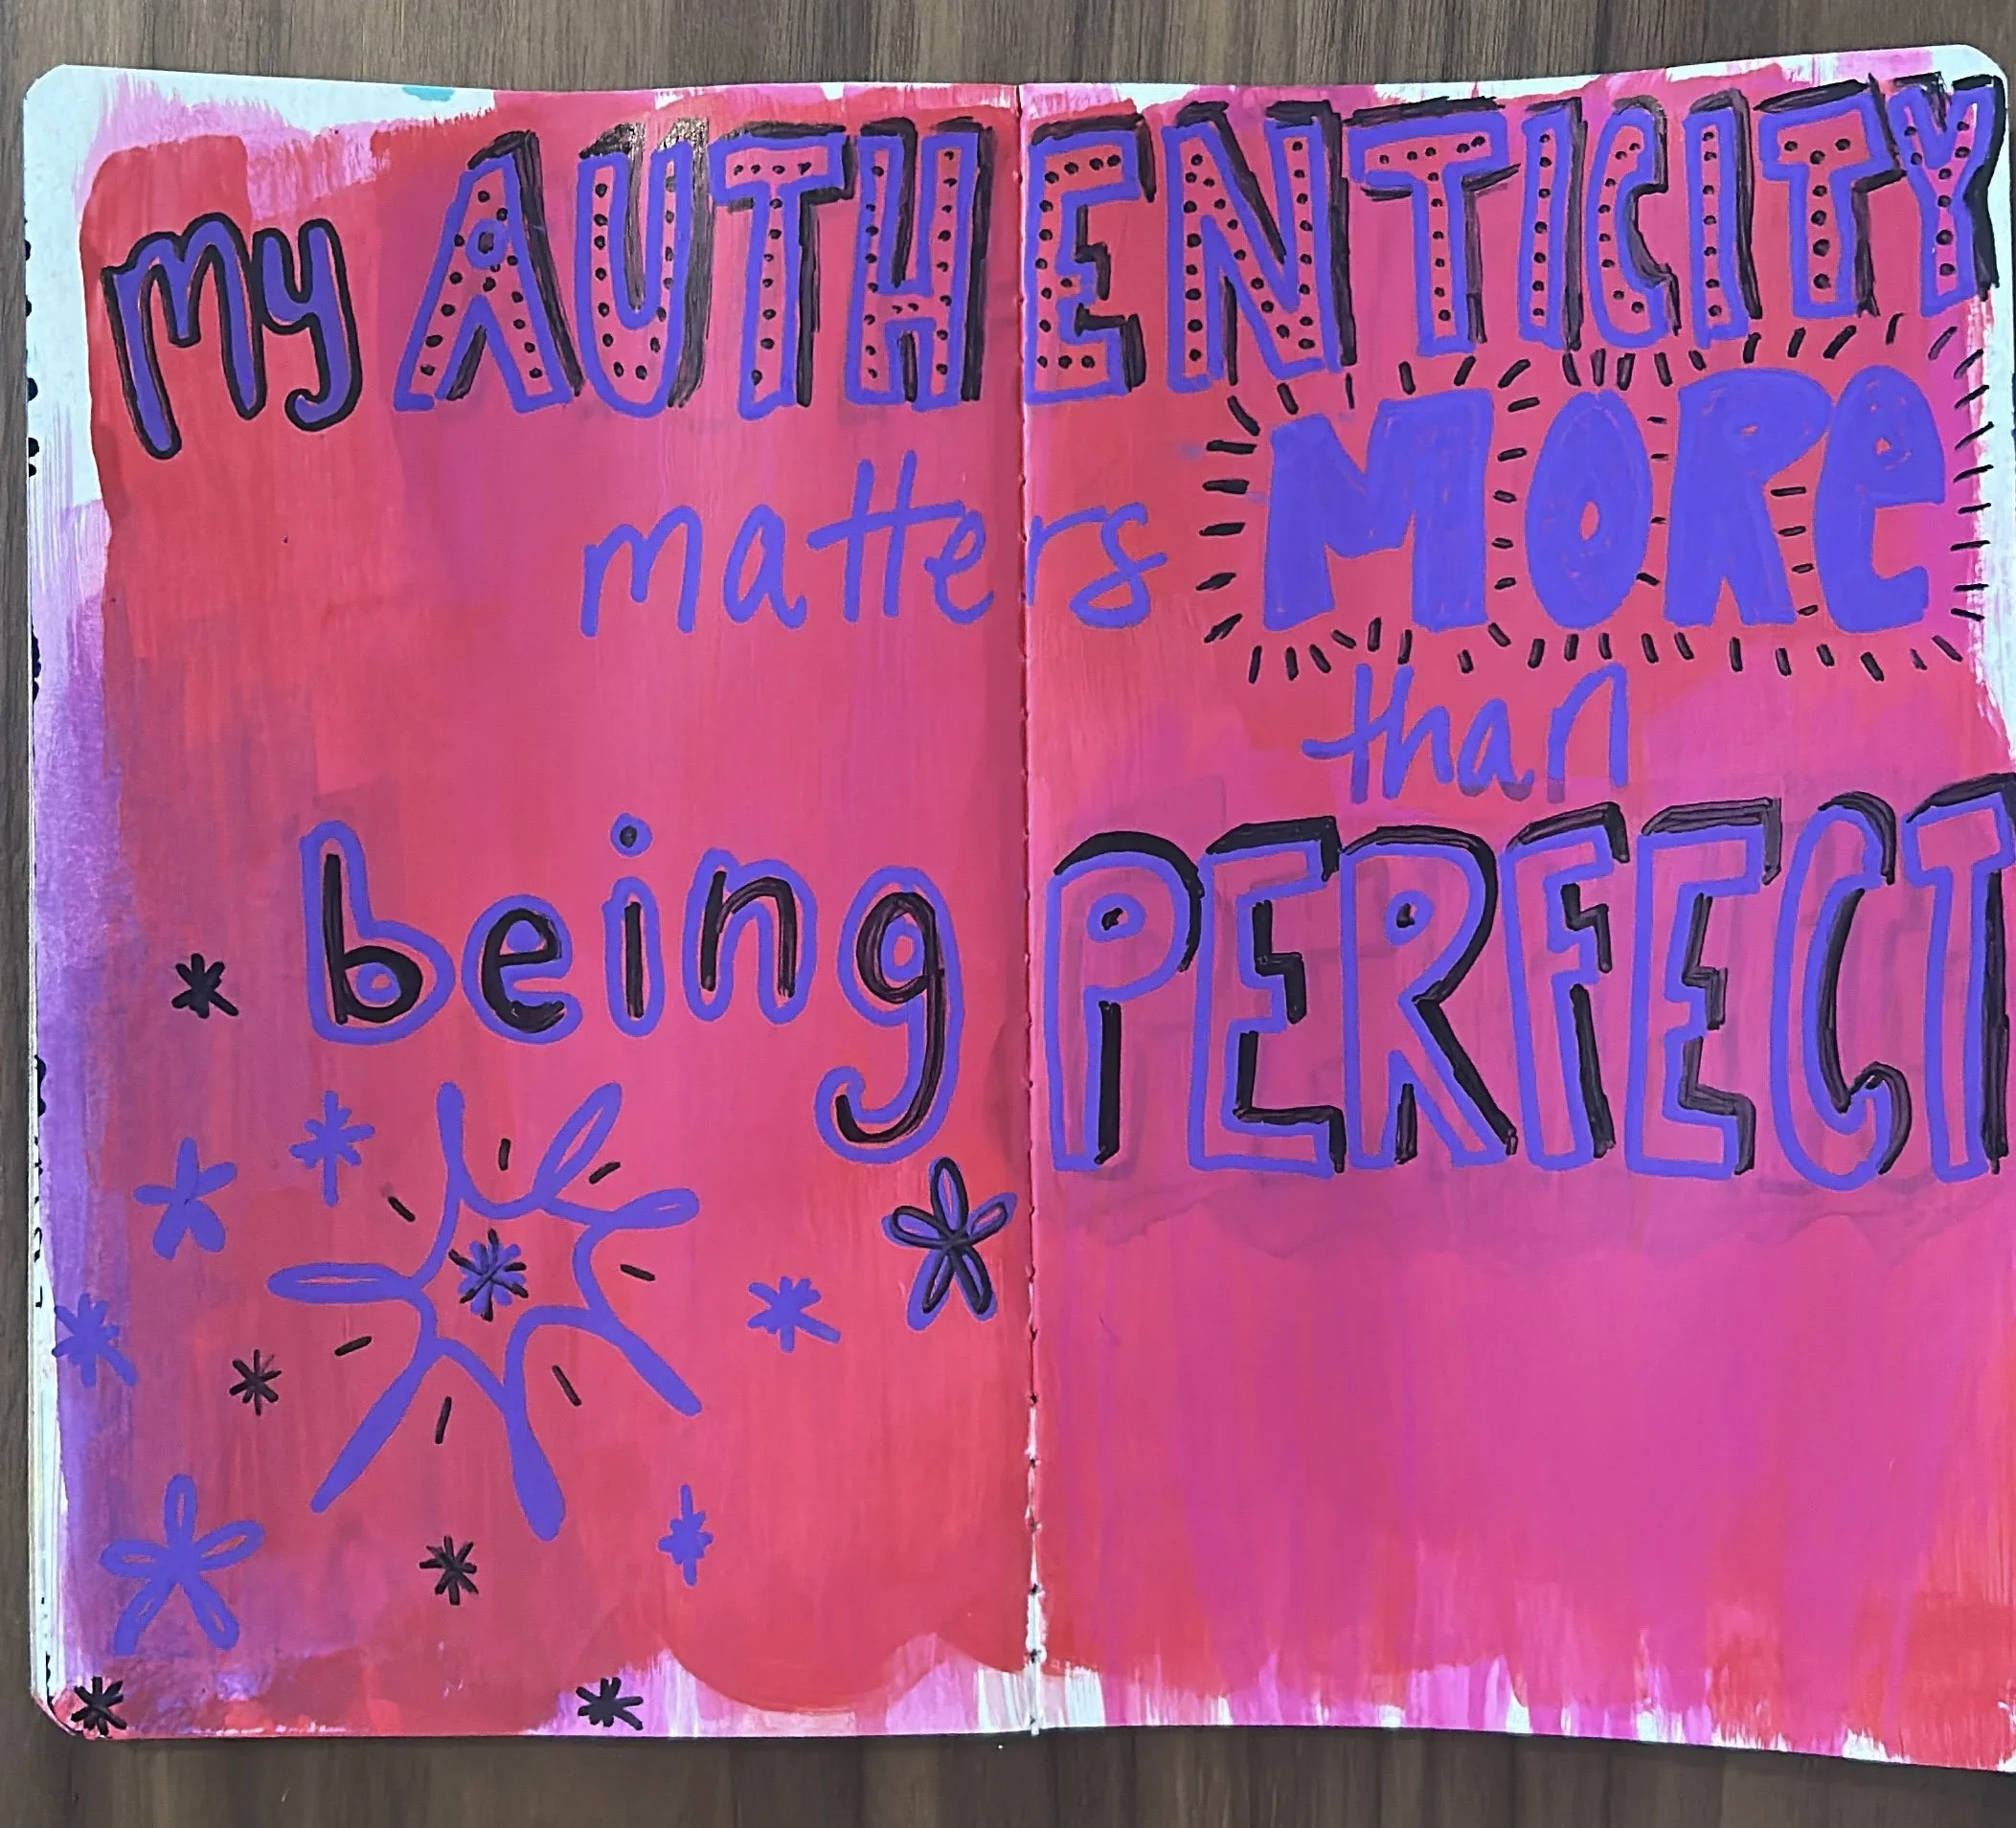 my AUTHENTICITY
matters MORe
than
being PERFECT